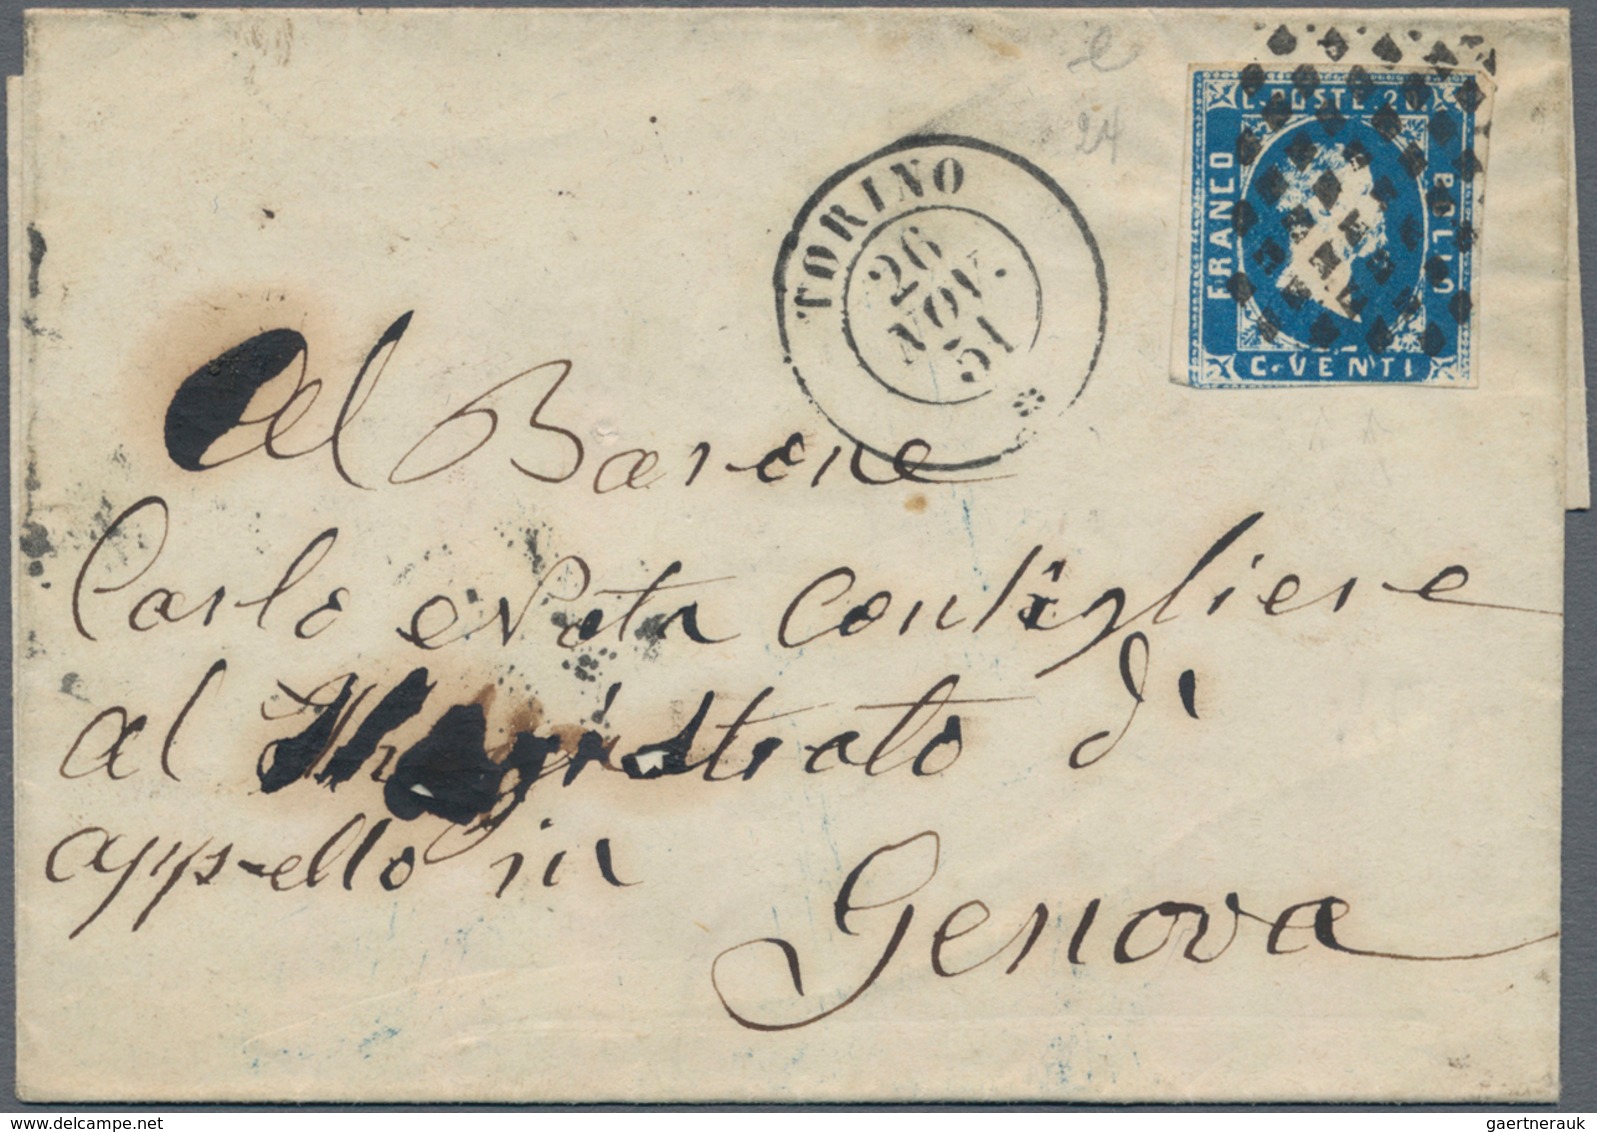 C. POSTE. 20.
FRANCO
BOLLO
C. VENTI
TORINO
26
NOV.
51
24
Al Barone
Carlo Nota Consigliere
al Magistrato di
appello in
Genova
gaertnerauk